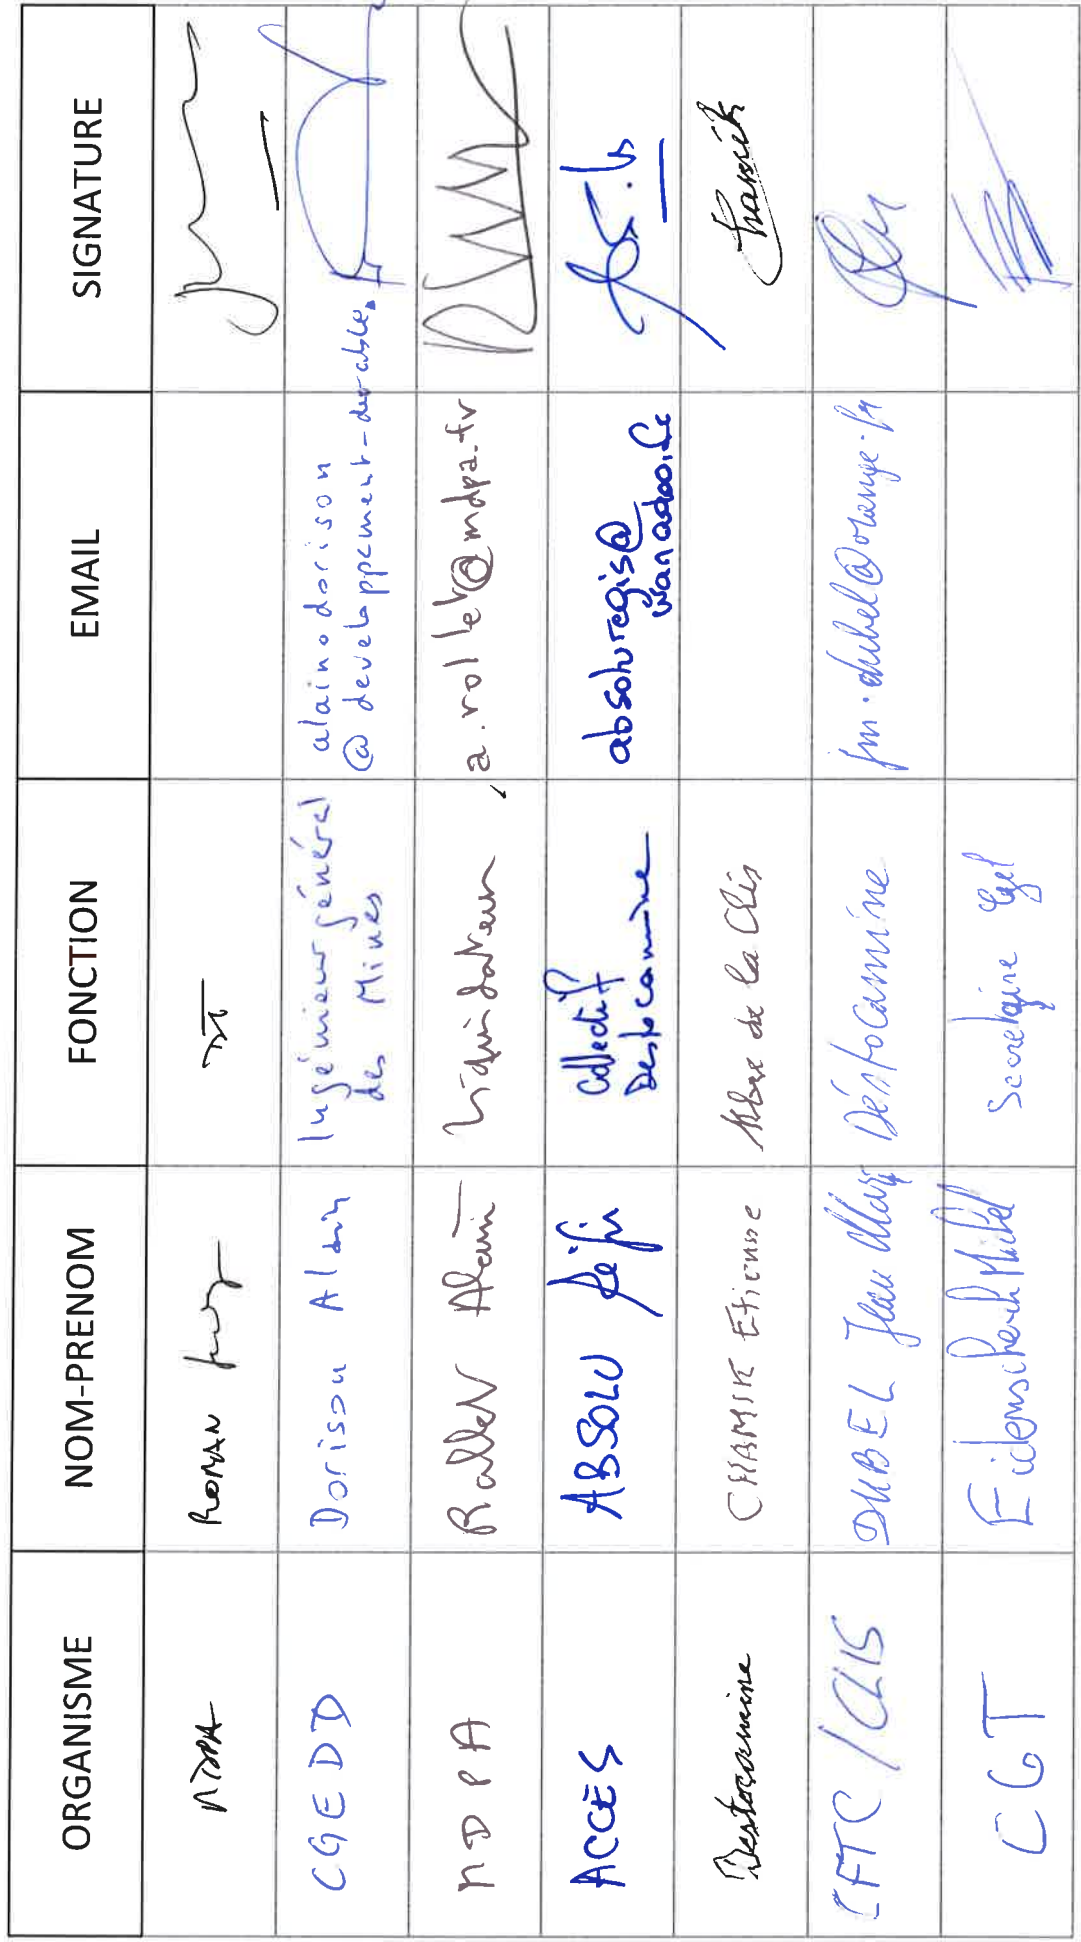 ORGANISME NOM-PRENOM FONCTION EMAIL SIGNATURE
MDPA ROMAN
CGEDD Dorison Alain Ingénieur général des Mines alain.dorison @ developpement-durable.
MDPA Rollet Alain Liquidateur a.rollet@mdpa.fr
ACCES ABSOLU Régis Collectif Destocamine absoluregis@ wanadoo.fr
Destocamine CHAMIK Etienne Mbre de la Clis Chamik
CFTC / CLIS DUBEL Jean Marie Déstocamine jm.dubel@orange.fr
CGT Eidenschenk Michel Secretaire Gel